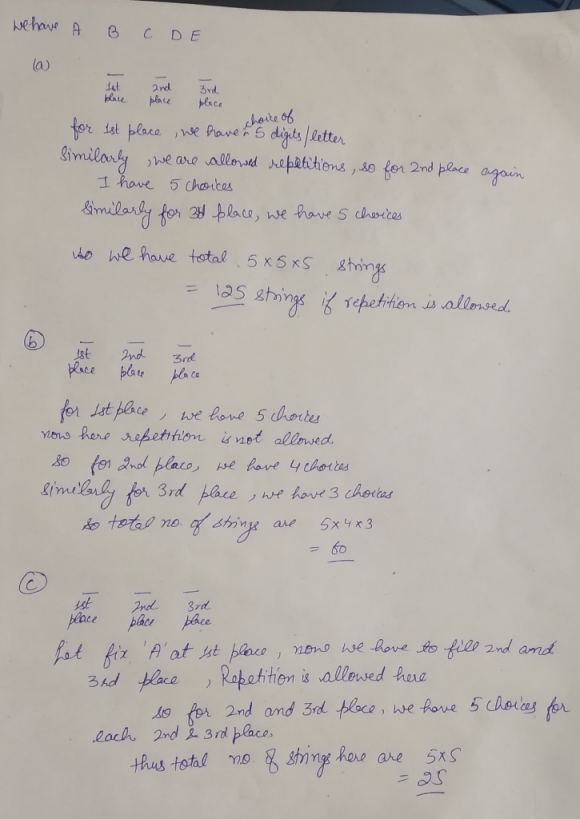 We have A B C D E
(a)
1st place 2nd place 3rd place
for 1st place, we have choice of 5 digits/letter
Similarly, we are allowed repetitions, so for 2nd place again
I have 5 choices
Similarly for 3rd place, we have 5 choices
so we have total 5x5x5 strings
= 125 strings if repetition is allowed.
(b)
1st place 2nd place 3rd place
for 1st place, we have 5 choices
now here repetition is not allowed.
so for 2nd place, we have 4 choices
Similarly for 3rd place, we have 3 choices
so total no. of strings are 5x4x3
= 60
(c)
1st place 2nd place 3rd place
Let fix 'A' at 1st place, now we have to fill 2nd and
3rd place, Repetition is allowed here
so for 2nd and 3rd place, we have 5 choices for
each 2nd & 3rd place.
thus total no. of strings here are 5x5
= 25